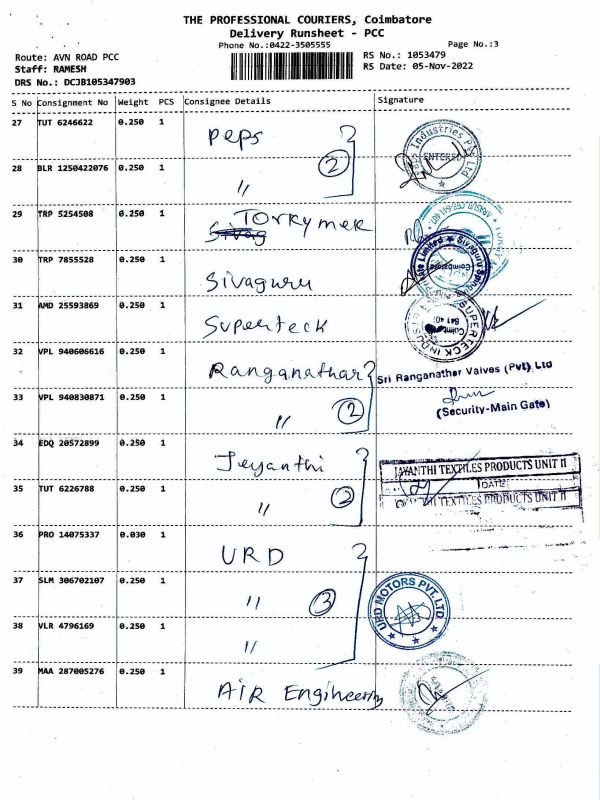 THE PROFESSIONAL COURIERS, Coimbatore
Delivery Runsheet - PCC
Phone No.:0422-3505555
Page No.:3
Route: AVN ROAD PCC
RS No.: 1053479
Staff: RAMESH
RS Date: 05-Nov-2022
DRS No.: DCJB105347903
S No Consignment No Weight PCS Consignee Details Signature
27 TUT 6246622 0.250 1 Peps
Industries
ENTERED
28 BLR 1250422076 0.250 1 〃 2
29 TRP 5254508 0.250 1 Torkymek
30 TRP 7855528 0.250 1 Sivaguru
Private Limited ★ Sivaguru
Coimbatore
31 AMD 25593869 0.250 1 Superteck
SUPERTECK INDUSTR
32 VPL 940606616 0.250 1 Ranganathar
Sri Ranganathar Valves (Pvt) Ltd
33 VPL 940830871 0.250 1 〃 2
(Security-Main Gate)
34 EDQ 20572899 0.250 1 Jeyanthi
JAYANTHI TEXTILES PRODUCTS UNIT II
DATE
35 TUT 6226788 0.250 1 〃 2
THI TEXTILES PRODUCTS UNIT II
36 PRO 14075337 0.030 1 URD
37 SLM 306702107 0.250 1 〃 3
URD MOTORS PVT LTD
38 VLR 4796169 0.250 1 〃
39 MAA 287005276 0.250 1 AIR Engineering